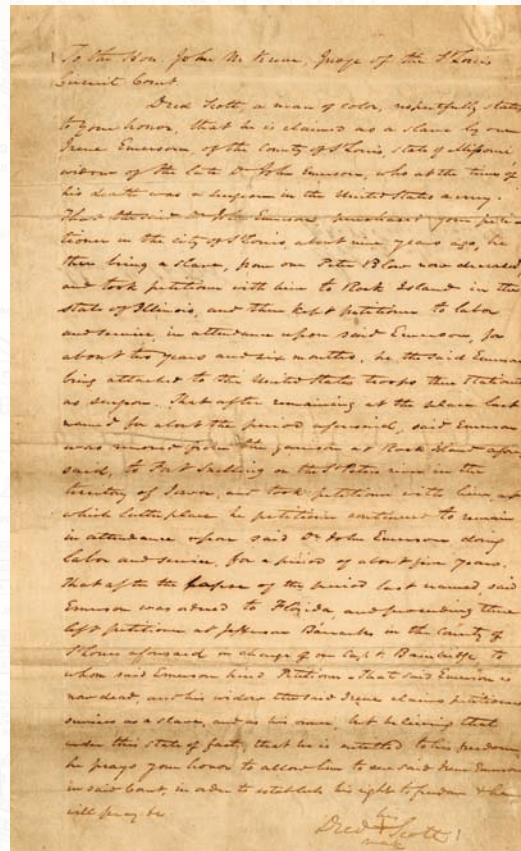 To the Hon. John M. Krum, Judge of the St Louis
Circuit Court.
Dred Scott, a man of color, respectfully states
to your honor, that he is claimed as a slave by one
Irene Emerson, of the County of St Louis, state of Missouri
widow of the late Dr John Emerson, who at the time of
his death was a surgeon in the United States army.
That the said Dr John Emerson purchased your peti-
tioner in the city of St Louis, about nine years ago, he
then being a slave, from one Peter Blow now deceased,
and took petitioner with him to Rock Island in the
state of Illinois, and then kept petitioner to labor
and service, in attendance upon said Emerson, for
about two years and six months, he the said Emerson
being attached to the United States troops there stationed
as surgeon. That after remaining at the place last
named for about the period aforesaid, said Emerson
was removed from the garrison at Rock Island afore
said, to Fort Snelling on the St Peters river in the
territory of Iowa, and took petitioner with him, at
which latter place he petitioner continued to remain
in attendance upon said Dr John Emerson doing
labor and service, for a period of about five years.
That after the lapse of the period last named, said
Emerson was ordered to Florida, and proceeding there
left petitioner at Jefferson Barracks in the County of
St Louis aforesaid in charge of one Capt Bainbridge, to
whom said Emerson hired Petitioner. That said Emerson is
now dead, and his widow the said Irene claims petitioners
services as a slave, and as his owner, but believing that
under this state of facts, that he is entitled to his freedom,
he prays your honor to allow him to sue said Irene Emerson
in said Court, in order to establish his right to freedom & he
will pray &c
his
Dred Scott
mark